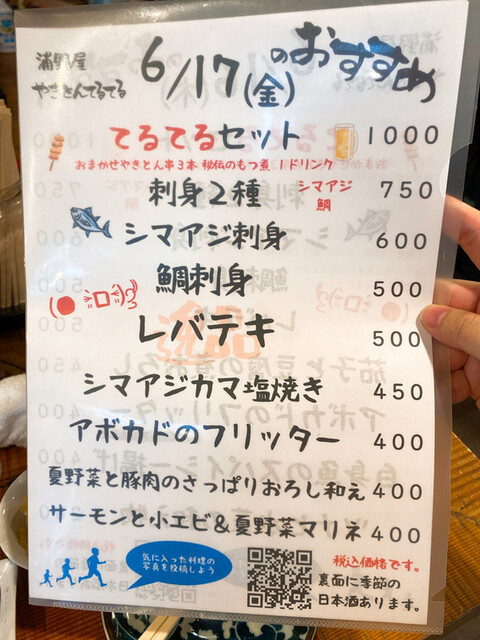 浦野屋
やきとんてるてる
6/17(金)のおすすめ
てるてるセット 1000
おまかせやきとん串3本 秘伝のもつ煮 1ドリンク
刺身2種 シマアジ 鯛 750
シマアジ刺身 600
鯛刺身 500
レバテキ 500
シマアジカマ塩焼き 450
アボカドのフリッター 400
夏野菜と豚肉のさっぱりおろし和え 400
サーモンと小エビ&夏野菜マリネ 400
気に入った料理の
写真を投稿しよう
税込価格です。
裏面に季節の
日本酒あります。